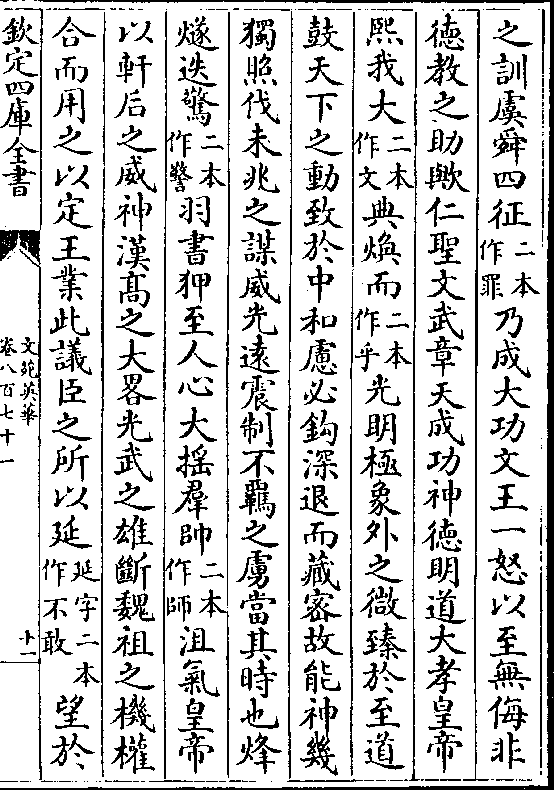 之訓虞舜四征二本作罪乃成大功文王一怒以至無侮非
德教之助歟仁聖文武章天成功神德明道大孝皇帝
熙我大二本作文典煥而二本作乎光明極象外之微臻於至道
鼓天下之動致於中和慮必鈎深退而藏密故能神幾
獨照伐未兆之謀威光遠震制不羈之虜當其時也烽
燧迭驚二本作警羽書狎至人心大搖羣帥二本作師沮氣皇帝
以軒后之威神漢髙之大畧光武之雄斷魏祖之機權
合而用之以定王業此議臣之所以延延字二本作不敢望於
欽定四庫全書
文苑英華
卷八百七十一
十一